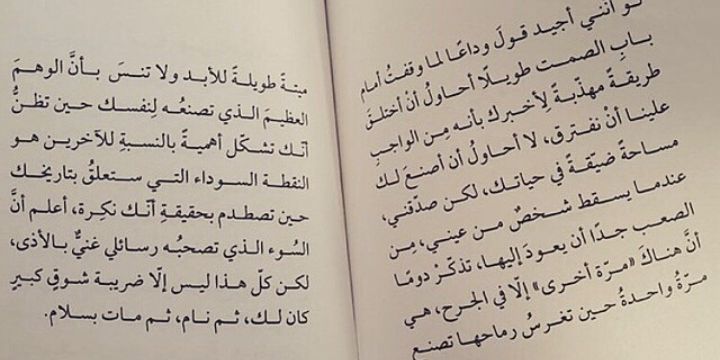 لو أنني أجيد قولَ وداعًا لما وقفتُ أمام
بابِ الصمت طويلًا أحاولُ أنْ أختلقَ
طريقةً مهذّبةً لِأخبرك بأنه مِن الواجبِ
علينا أنْ نفترق، لا أحاولُ أن أصنعَ لك
مساحةً ضيّقةً في حياتك، لكن صدّقني،
عندما يسقط شخصٌ من عيني، مِن
الصعب جدًا أن يعودَ إليها، تذكّرْ دومًا
أنَّ هناكَ «مرّة أخرى» إلّا في الجرح، هي
مرّةٌ واحدةٌ حين تغرسُ رماحها تصنع
ميتةً طويلةً للأبد ولا تنسَ بأنَّ الوهمَ
العظيمَ الذي تصنعُه لِنفسك حين تظنُّ
أنّك تشكّل أهميةً بالنسبةِ للآخرين هو
النقطة السوداء التي ستعلقُ بتاريخك
حين تصطدم بحقيقةِ أنّك نكِرة، أعلم أنَّ
السُوء الذي تصحبُه رسائلي غنيٌّ بالأذى،
لكن كلّ هذا ليس إلّا ضريبة شوقٍ كبيرٍ
كان لك، ثم نام، ثم مات بسلام.